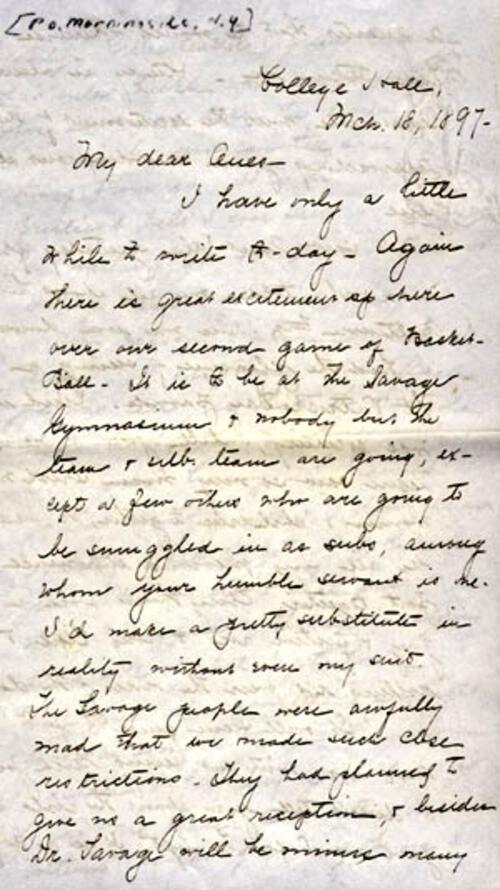 [P.O. Morningside, N.Y]
College Hall,
Mch. 18, 1897-
My dear Ones-
I have only a little
while to write to-day- Again
there is great excitement up here
over our second game of Basket-
Ball- It is to be at the Savage
Gymnasium & nobody but the
team & sub. team are going, ex-
cept a few others who are going to
be smuggled in as subs, among
whom your humble servant is me.
I'd make a pretty substitute in
reality without even my suit.
The Savage people were awfully
mad that we made such
restrictions. They had planned to
give us a great reception, & besides
Dr. Savage will be minus many